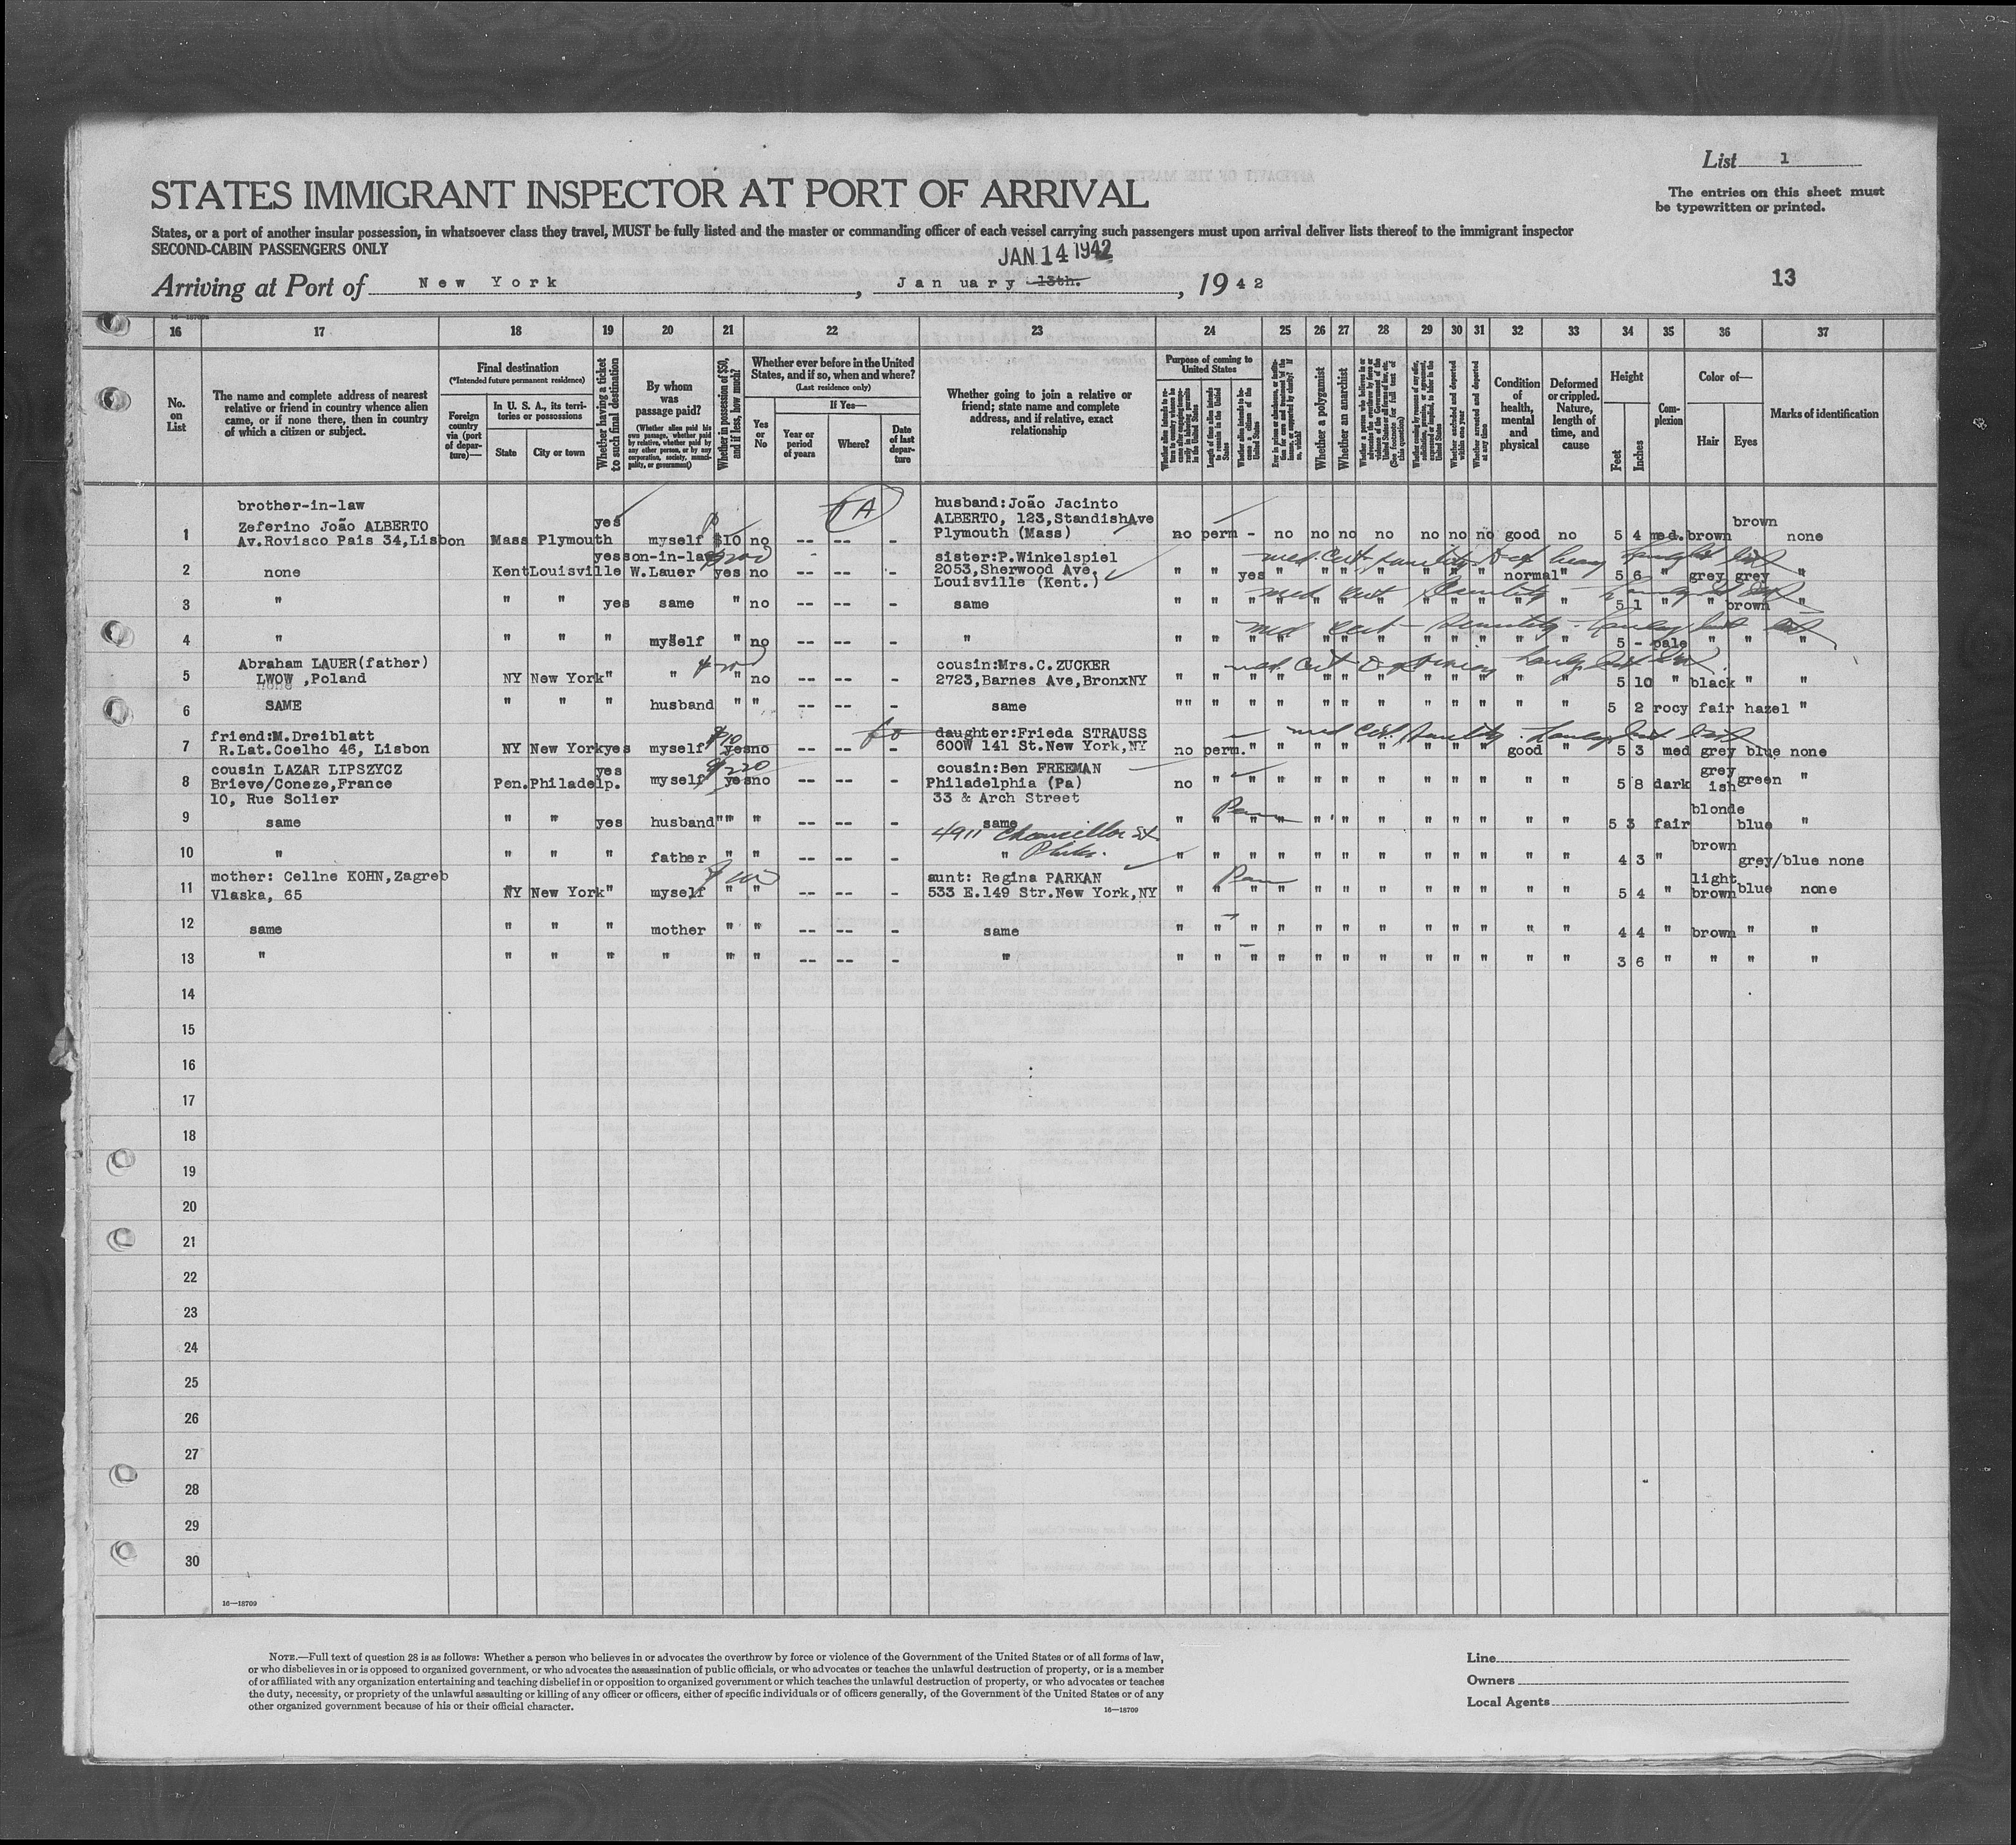 List 1
STATES IMMIGRANT INSPECTOR AT PORT OF ARRIVAL
The entries on this sheet must
be typewritten or printed.
States, or a port of another insular possession, in whatsoever class they travel, MUST be fully listed and the master or commanding officer of each vessel carrying such passengers must upon arrival deliver lists thereof to the immigrant inspector
SECOND-CABIN PASSENGERS ONLY
JAN 14 1942
Arriving at Port of New York, January 13th., 1942
13
16 17 18 19 20 21 22 23 24 25 26 27 28 29 30 31 32 33 34 35 36 37
No. on List
The name and complete address of nearest
relative or friend in country whence alien
came, or if none there, then in country
of which a citizen or subject.
Final destination
(*Intended future permanent residence)
Foreign country via (port of departure)—
In U. S. A., its territories or possessions
State
City or town
Whether having a ticket to such final destination
By whom was passage paid?
(Whether alien paid his own passage, whether paid by relative, whether paid by any other person, or by any corporation, society, municipality, or government)
Whether in possession of $50, and if less, how much?
Whether ever before in the United
States, and if so, when and where?
(Last residence only)
Yes or No
If Yes—
Year or period of years
Where?
Date of last departure
Whether going to join a relative or
friend; state name and complete
address, and if relative, exact
relationship
Purpose of coming to United States
Length of time alien intends to remain in the United States
Whether alien intends to become a citizen of the United States
Whether a polygamist
Whether an anarchist
Whether excluded and deported within one year
Whether arrested and deported at any time
Condition of health, mental and physical
Deformed or crippled. Nature, length of time, and cause
Height
Feet
Inches
Complexion
Color of—
Hair
Eyes
Marks of identification
brother-in-law
Zeferino João ALBERTO
Av.Rovisco Pais 34,Lisbon
1 Mass Plymouth yes myself $10 no -- -- -
husband:João Jacinto
ALBERTO, 123,StandishAve
Plymouth (Mass)
no perm - no no no no no no no good no 5 4 med. brown brown none
2 none Kent Louisville yes son-in-law W.Lauer yes no -
sister:P.Winkelspiel
2053,Sherwood Ave.
Louisville (Kent.)
" " yes " " " " " " " normal " 5 6 " grey grey "
3 " " " yes same " no -- -- - same " " " " " " " " " " " " 5 1 " " brown "
4 " " " " myself " no -- -- - " " " " " " " " " " " " " 5 - pale " " "
Abraham LAUER(father)
5 LWOW ,Poland NY New York " " " no -- -- -
cousin:Mrs.C.ZUCKER
2723,Barnes Ave,BronxNY
" " " " " " " " " " " " 5 10 " black " "
6 SAME " " " husband " " -- -- - same "" " " " " " " " " " " 5 2 rocy fair hazel "
friend:M.Dreiblatt
7 R.Lat.Coelho 46, Lisbon NY New York yes myself $10 yes no -- -- -
daughter:Frieda STRAUSS
600W 141 St.New York,NY
no perm. " " " " " " " " good " 5 3 med grey blue none
cousin LAZAR LIPSZYCZ
8 Brieve/Coneze,France
10, Rue Solier
Pen. Philadelp. yes myself yes no -- -- -
cousin:Ben FREEMAN
Philadelphia (Pa)
33 & Arch Street
no " " " " " " " " " " " 5 8 dark grey ish green "
9 same " " yes husband "" " -- -- - same
4911 Chancellor St
Phila.
" " " " " " " " " " " " 5 3 fair blonde blue "
10 " " " " father " " -- -- - " " " " " " " " " " " " " 4 3 " brown grey/blue none
mother: Cellne KOHN,Zagreb
11 Vlaska, 65 NY New York " myself " " -- -- -
aunt: Regina PARKAN
533 E.149 Str.New York,NY
" " " " " " " " " " " " 5 4 " light brown blue none
12 same " " " mother " " -- -- - same " " " " " " " " " " " " 4 4 " brown " "
13 " " " " " " " -- -- - " " " " " " " " " " " " " 3 6 " " " "
14
15
16
17
18
19
20
21
22
23
24
25
26
27
28
29
30
16—18709
NOTE.—Full text of question 28 is as follows: Whether a person who believes in or advocates the overthrow by force or violence of the Government of the United States or of all forms of law,
or who disbelieves in or is opposed to organized government, or who advocates the assassination of public officials, or who advocates or teaches the unlawful destruction of property, or is a member
of or affiliated with any organization entertaining and teaching disbelief in or opposition to organized government or which teaches the unlawful destruction of property, or who advocates or teaches
the duty, necessity, or propriety of the unlawful assaulting or killing of any officer or officers, either of specific individuals or of officers generally, of the Government of the United States or of any
other organized government because of his or their official character.
16—18709
Line
Owners
Local Agents